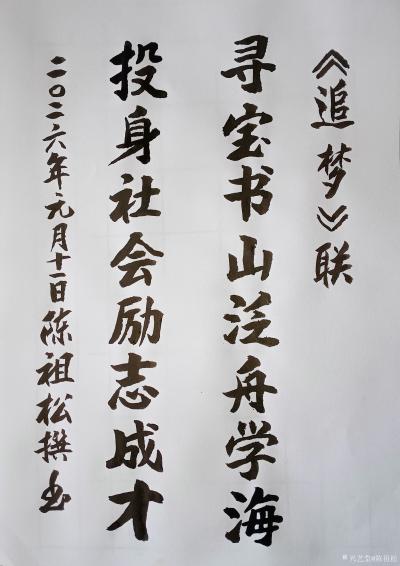 《追梦》联
寻宝书山泛舟学海
投身社会励志成才
二〇二六年元月十一日陈祖松撰书
兴艺堂@陈祖松